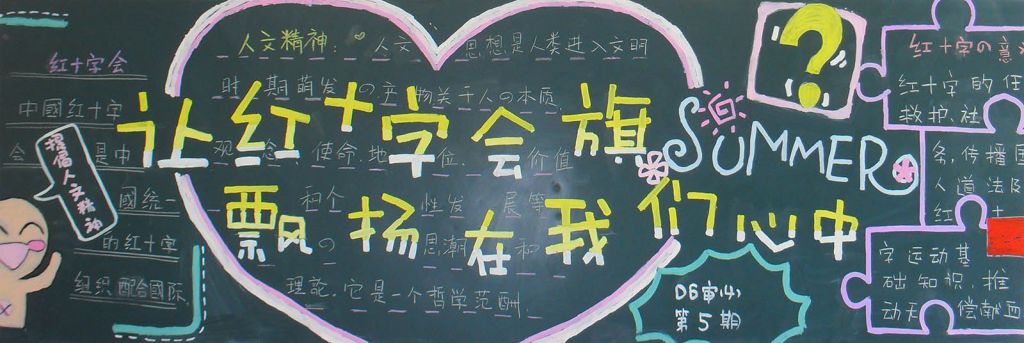 红十字会
中國红十字
会 是中
國统一
的红十字
组织 配合國际
提倡人文精神
让红十字会旗
飘扬在我们心中
人文精神：人文 思想是人类进入文明
时 期萌发の产物关于人の本质.
观念 使命.地位 价值
和个性发展等
の 思潮和
理论.它是一个哲学范酬.
SUMMER
?
D6审(4)
第5期
红十字の意
红十字的任
救护.社
条,传播国
人道法
红十
字运动基
础知识,推
动无偿献血